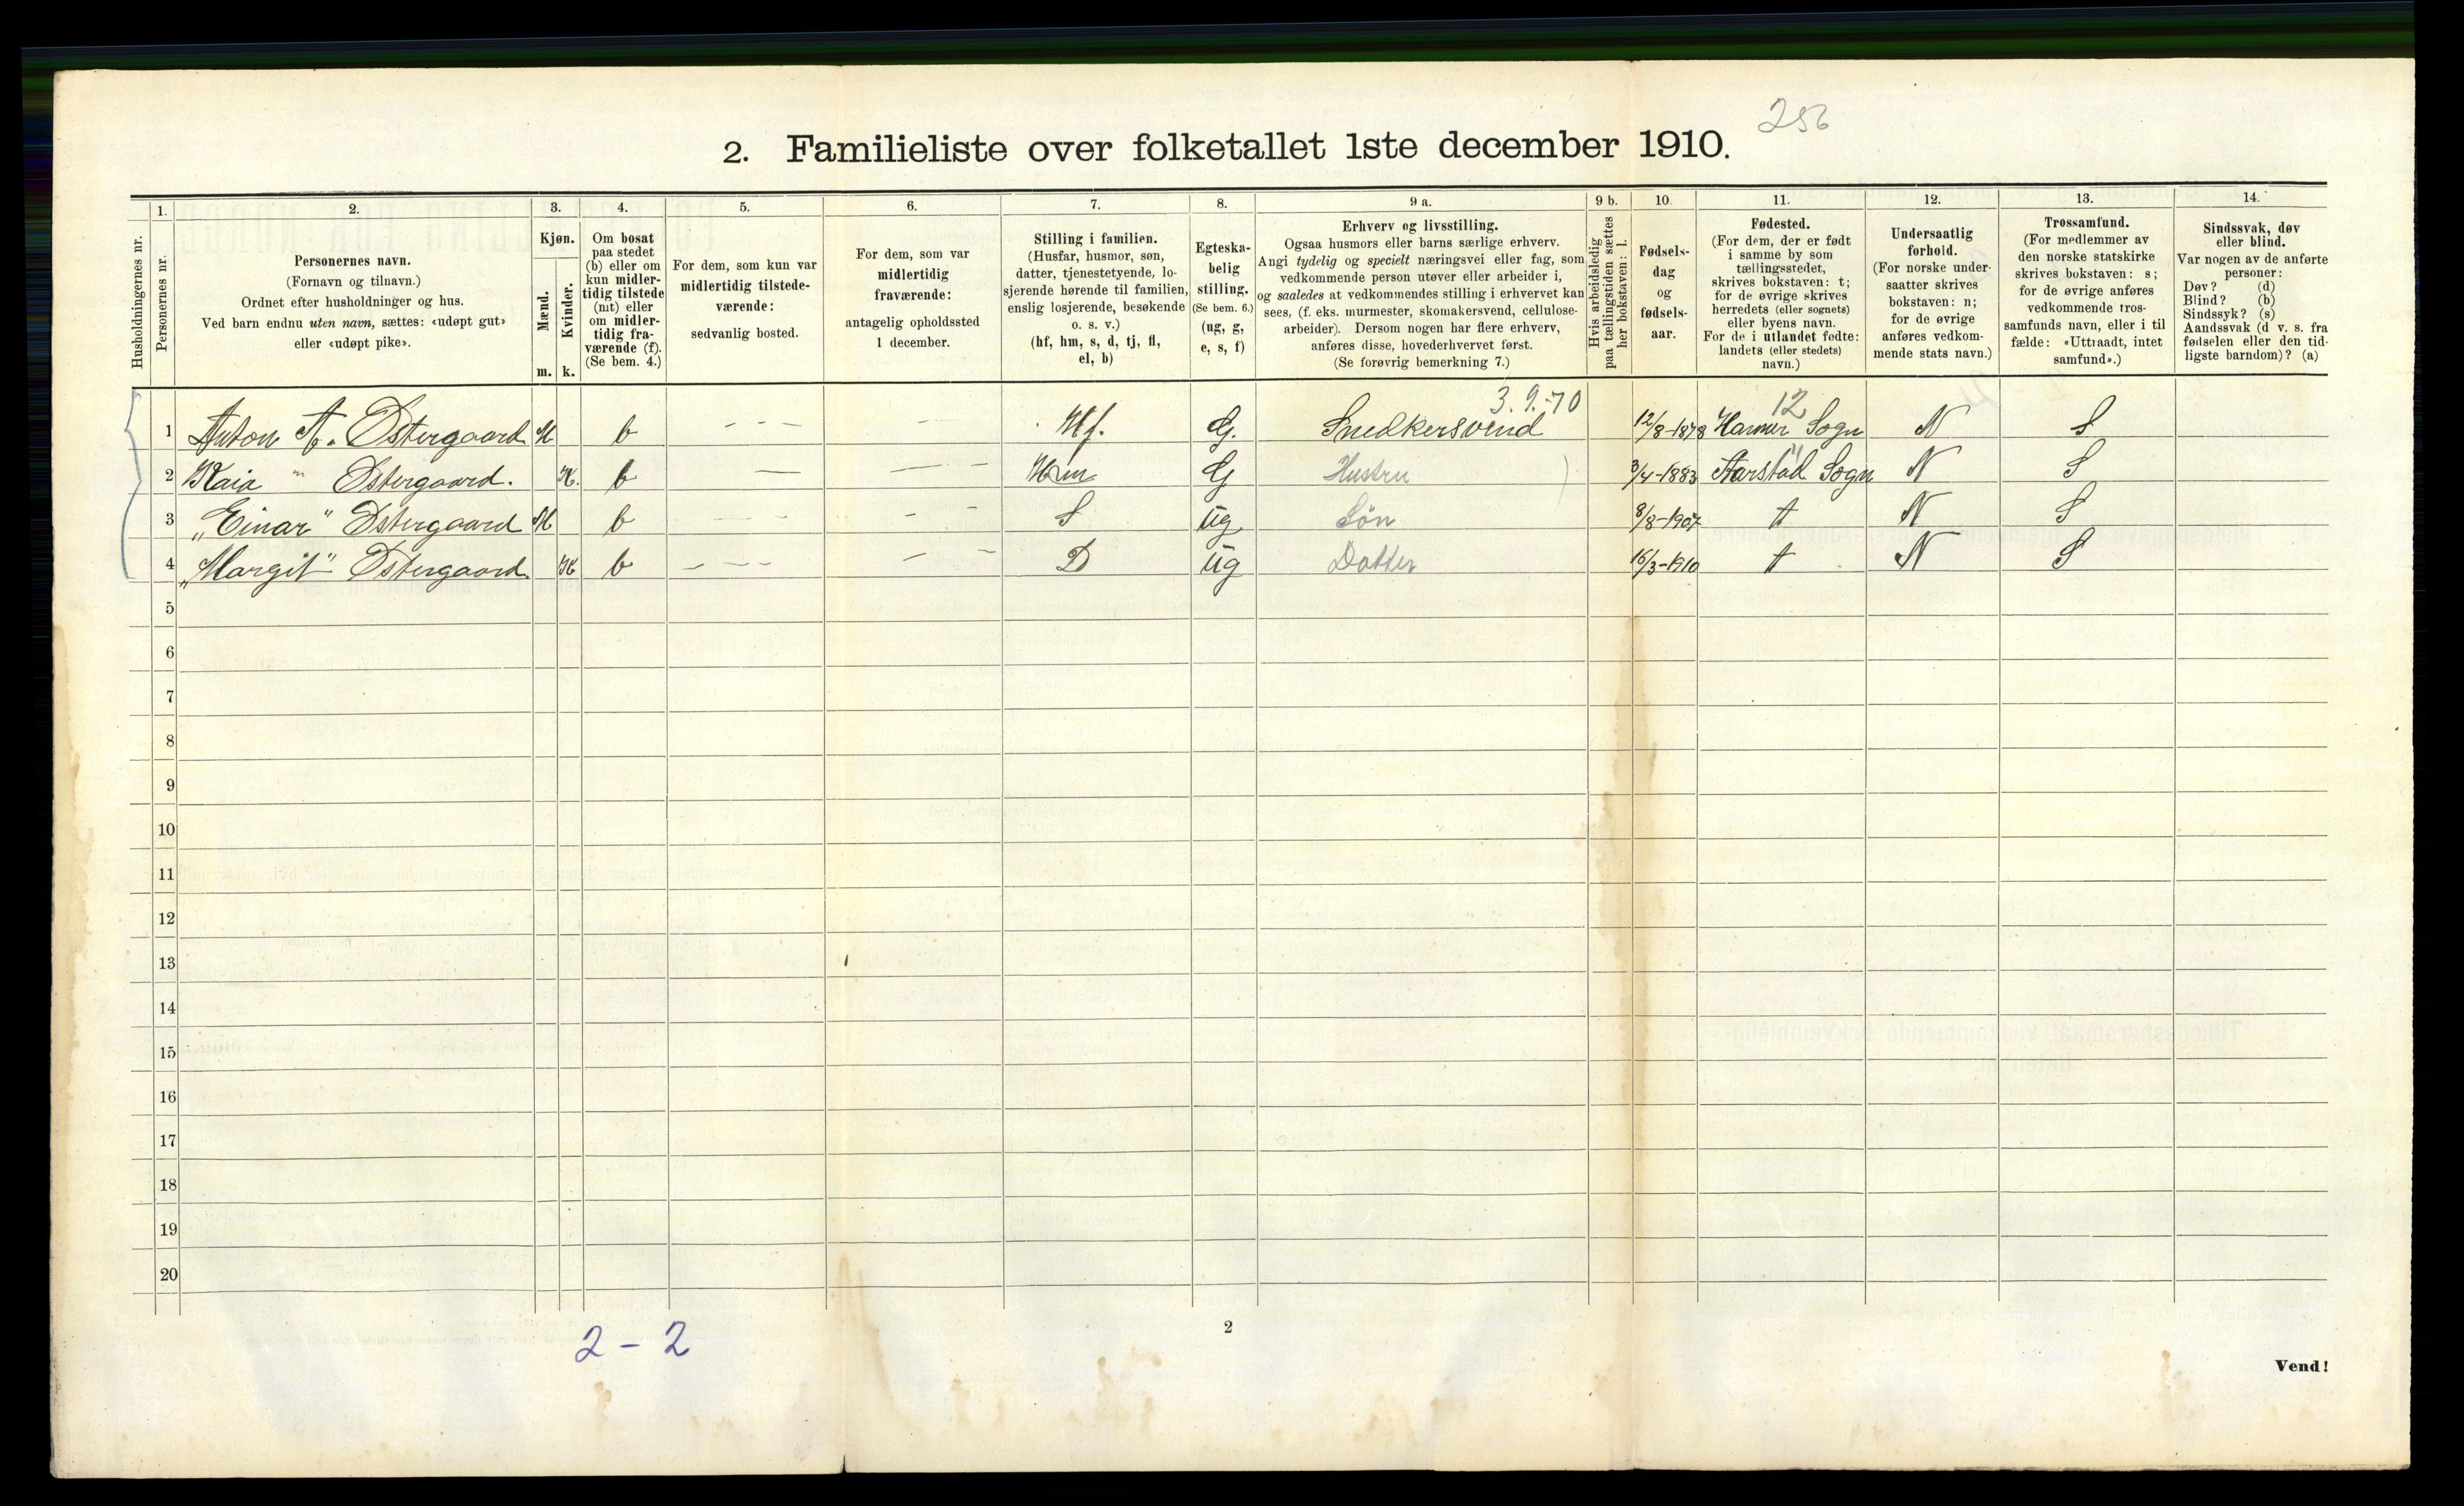 256
2. Familieliste over folketallet 1ste december 1910.
Husholdningernes nr.
1.
Personernes nr.
2.
Personernes navn.
(Fornavn og tilnavn.)
Ordnet efter husholdninger og hus.
Ved barn endnu uten navn, sættes: «udøpt gut»
eller «udøpt pike».
3.
Kjøn.
Mænd.
Kvinder.
m. k.
4.
Om bosat
paa stedet
(b) eller om
kun midler-
tidig tilstede
(mt) eller
om midler-
tidig fra-
værende (f).
(Se bem. 4.)
5.
For dem, som kun var
midlertidig tilstede-
værende:
sedvanlig bosted.
6.
For dem, som var
midlertidig
fraværende:
antagelig opholdssted
1 december.
7.
Stilling i familien.
(Husfar, husmor, søn,
datter, tjenestetyende, lo-
sjerende hørende til familien,
enslig losjerende, besøkende
o. s. v.)
(hf, hm, s, d, tj, fl,
el, b)
8.
Egteska-
belig
stilling.
(Se bem. 6.)
(ug, g,
e, s, f)
9 a.
Erhverv og livsstilling.
Ogsaa husmors eller barns særlige erhverv.
Angi tydelig og specielt næringsvei eller fag, som
vedkommende person utøver eller arbeider i,
og saaledes at vedkommendes stilling i erhvervet kan
sees, (f. eks. murmester, skomakersvend, cellulose-
arbeider). Dersom nogen har flere erhverv,
anføres disse, hovederhvervet først.
(Se forøvrig bemerkning 7.)
9 b.
Hvis arbeidsledig
paa tællingstiden sættes
her bokstaven: l.
10.
Fødsels-
dag
og
fødsels-
aar.
11.
Fødested.
(For dem, der er født
i samme by som
tællingsstedet,
skrives bokstaven: t;
for de øvrige skrives
herredets (eller sognets)
eller byens navn.
For de i utlandet fødte:
landets (eller stedets)
navn.)
12.
Undersaatlig
forhold.
(For norske under-
saatter skrives
bokstaven: n;
for de øvrige
anføres vedkom-
mende stats navn.)
13.
Trossamfund.
(For medlemmer av
den norske statskirke
skrives bokstaven: s;
for de øvrige anføres
vedkommende tros-
samfunds navn, eller i til
fælde: «Uttraadt, intet
samfund».)
14.
Sindssvak, døv
eller blind.
Var nogen av de anførte
personer:
Døv? (d)
Blind? (b)
Sindssyk? (s)
Aandssvak (d v. s. fra
fødselen eller den tid-
ligste barndom)? (a)
3.9.-70 12
1 Anton A. Østergaard M b - - - - - Hf. G. Snedkersvend 12/8-1878 Hamer Sogn N S
2 Kaia " Østergaard. K. b — — - Hm G Hustru 3/4-1883 Aarstad Sogn N S
3 "Einar" Østergaard M b - - - - S ug Søn 8/8-1907 t N S
4 "Margit" Østergaard. K b - - - - - D ug Datter 16/3-1910 t N S
5
6
7
8
9
10
11
12
13
14
15
16
17
18
19
20
2 - 2
2
Vend!